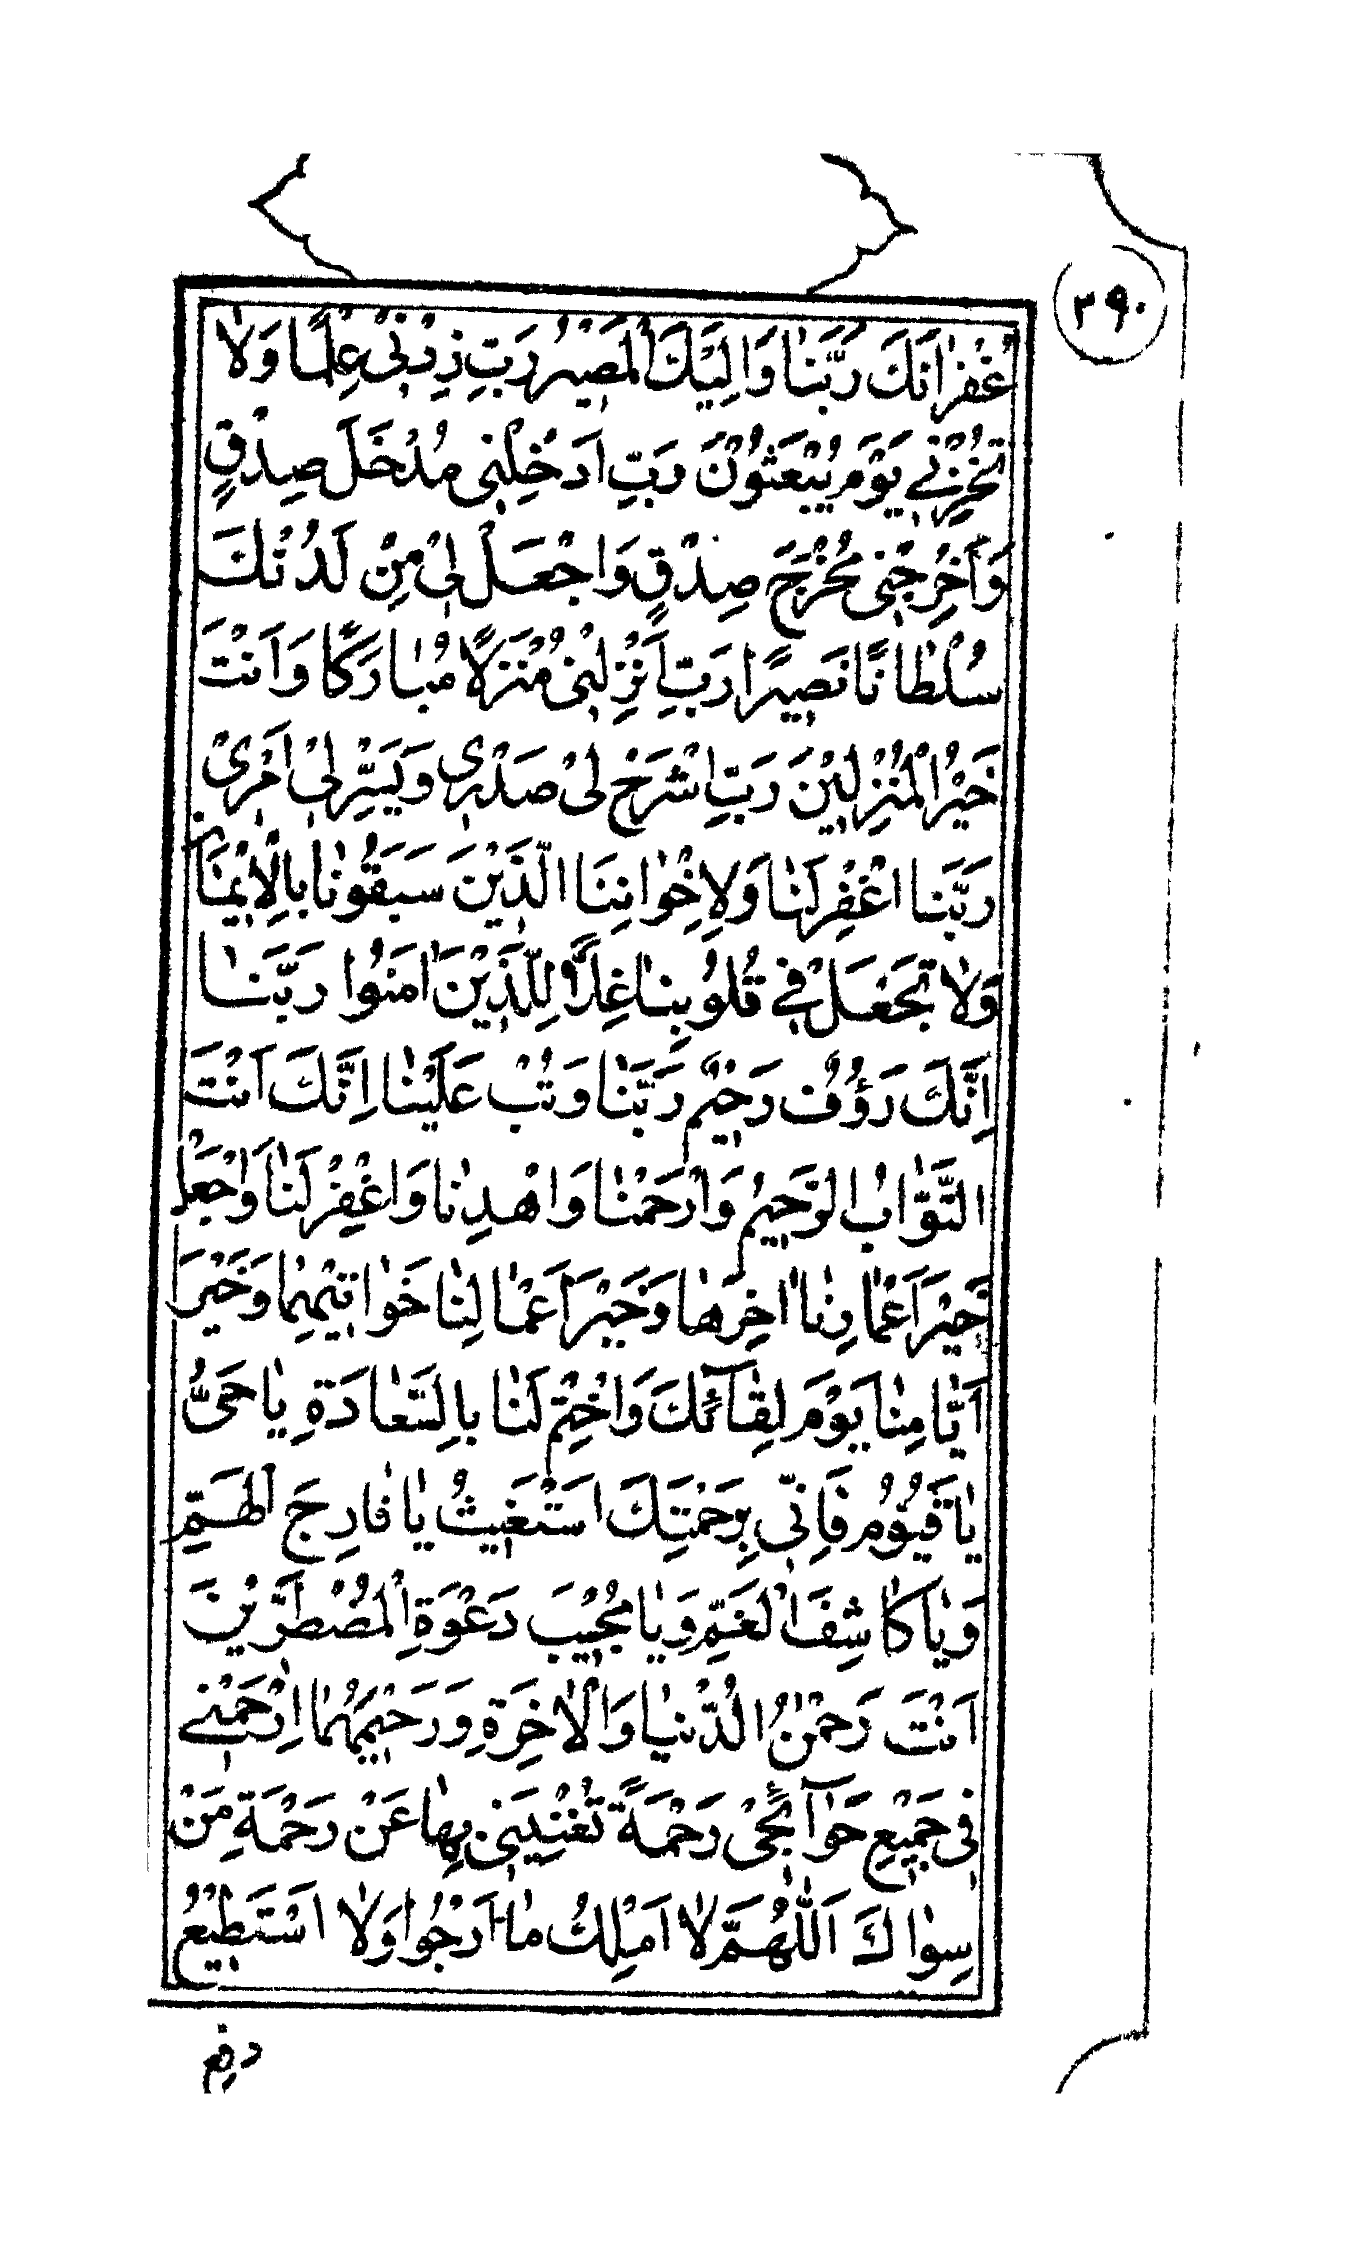 ۲۹۰
غُفْرٰانَكَ رَبَّنٰا وَاِلَيْكَ الْمَصِيْرُ رَبِّ زِدْنِیْ عِلْمًا وَلٰا
تُخْزِنِیْ يَوْمَ يُبْعَثُوْنَ رَبِّ اَدْخِلْنِی مُدْخَلَ صِدْقٍ
وَاَخْرِجْنِی مُخْرَجَ صِدْقٍ وَاجْعَلْ لِیْ مِنْ لَدُنْكَ
سُلْطٰانًا نَصِيرًا رَبِّ اَنْزِلْنِیْ مُنْزَلًا مُبٰارَكًا وَاَنْتَ
خَيْرُ الْمُنْزِلِيْنَ رَبِّ اشْرَحْ لِیْ صَدْرِی وَيَسِّرْ لِیْ اَمْرِیْ
رَبَّنَا اغْفِرْ لَنٰا وَلِاِخْوٰانِنَا الَّذِيْنَ سَبَقُونٰا بِالْاِيْمَانِ
وَلٰا تَجْعَلْ فِی قُلُوبِنٰا غِلًّا لِلَّذِيْنَ اٰمَنُوا رَبَّنٰا
اِنَّكَ رَؤُفٌ رَحِيْمٌ رَبَّنٰا وَتُبْ عَلَيْنٰا اِنَّكَ اَنْتَ
التَّوّٰابُ الرَّحِيمُ وَارْحَمْنٰا وَاهْدِنٰا وَاغْفِرْ لَنٰا وَاجْعَلْ
خَيْرَ اَعْمٰارِنٰا اٰخِرَهٰا وَخَيْرَ اَعْمٰالِنٰا خَوٰاتِيْمَهٰا وَخَيْرَ
اَيّٰامِنٰا يَوْمَ لِقٰآئِكَ وَاخْتِمْ لَنٰا بِالسَّعٰادَةِ يٰا حَیُّ
يٰا قَيُّوْمُ فَاِنِّی بِرَحْمَتِكَ اسْتَغِيثُ يٰا فٰارِجَ الْهَمِّ
وَيٰا كٰاشِفَ الْغَمِّ وَيٰا مُجِيْبَ دَعْوَةِ الْمُضْطَرِّيْنَ
اَنْتَ رَحْمٰنُ الدُّنْيٰا وَالْاٰخِرَةِ وَرَحِيْمُهُمٰا اِرْحَمْنِیْ
فِی جَمِيْعِ حَوٰآئِجِیْ رَحْمَةً تُغْنِيْنِی بِهٰا عَنْ رَحْمَةِ مَنْ
سِوٰاكَ اَللّٰهُمَّ لٰا اَمْلِكُ مٰا اَرْجُوا وَلٰا اَسْتَطِيْعُ
دفع